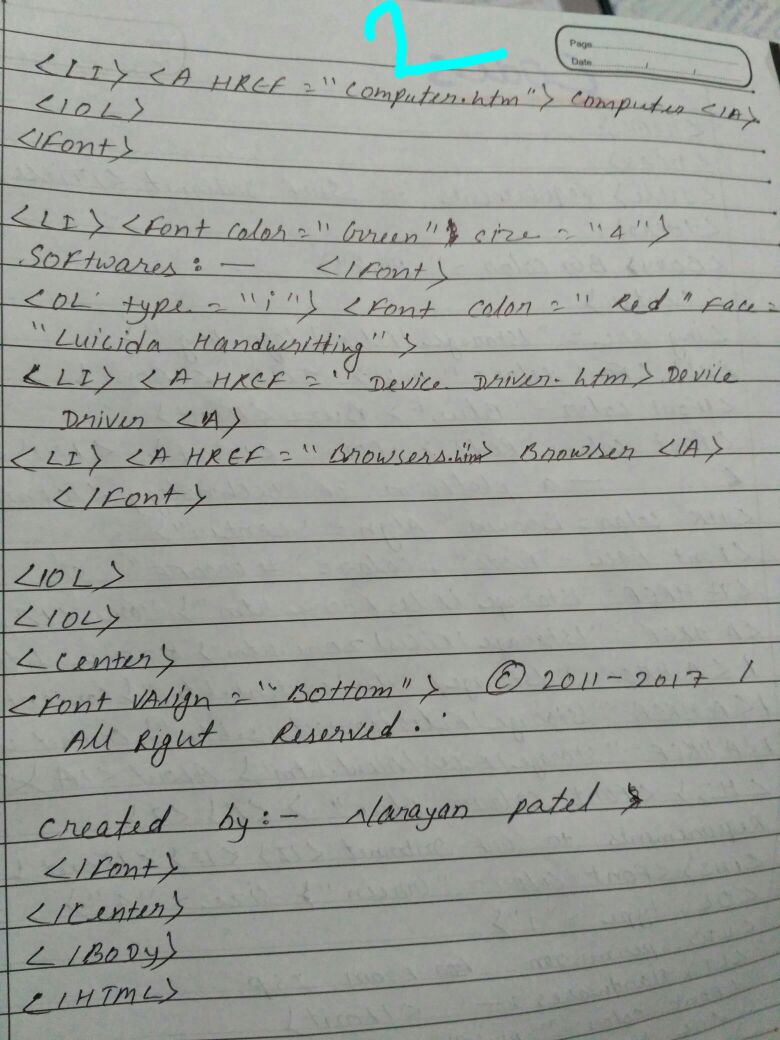 2
Page
Date
<LI> <A HREF = "Computer.htm"> Computer </A>
</OL>
</Font>
<LI> <Font Color = "Green" size = "4">
Softwares : — </Font>
<OL type = "i"> <Font Color = "Red" Face =
"Luicida Handwritting">
<LI> <A HREF = "Device Driver.htm> Device
Driver </A>
<LI> <A HREF = "Browsers.htm> Browser </A>
</Font>
</OL>
</OL>
<Center>
<Font VAlign = "Bottom"> © 2011-2017 /
All Right Reserved.
Created by :- Narayan patel
</Font>
</Center>
</BODY>
</HTML>